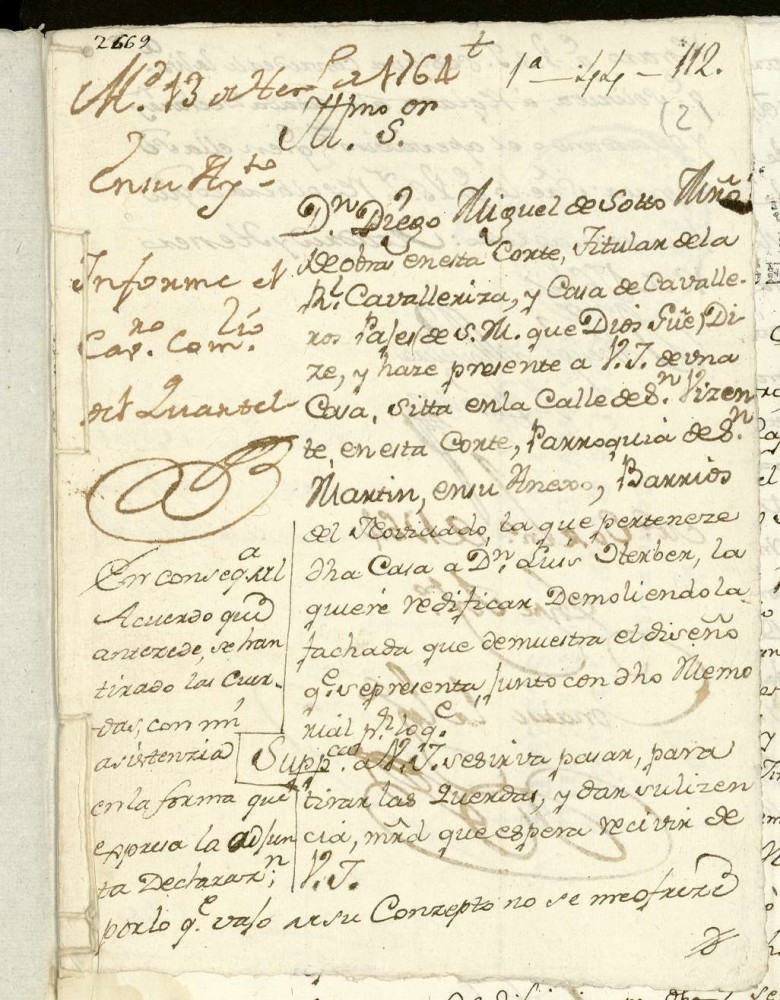 2669
M.d 13 de Hen.o de 1764 1a - 44 - 112.
(2)
Illmo or
S.
En su Ay.to
Informe el
Cav.ro Com.rio
del Quartel
D.n Diego Miguel de Sotto Mñro
de obras en esta Corte, Titular de la
Rl. Cavalleriza, y Casa de Cavalle-
ros Pajes de S. M. que Dios Gue, Di-
ze, y haze presente a V. I. de vna
Casa, sitta en la Calle de S.n Vizen
te, en esta Corte, Parroquia de S.n
Martin, en su Anexo, Barrios
del Noviziado, la que perteneze
dha Casa a D.n Luis Herber, la
quiere redificar Demoliendo la
fachada que demuestra el diseño
q.e se presenta, Junto con dho Memo
rial pr. lo q.e
Supp.ca a V. I. se sirva pasar, para
tirar las Querdas, y dar su lizen
cia, mrd que espera recivir de
V. I.
En conseq.a del
Acuerdo que
anrezede, se han
tirado las Cuer-
das, con mi
asistenzia
en la forma que
expresa la adjun
ta Declarazn;
por lo q.e vajo de su Conzepto no se me ofreze